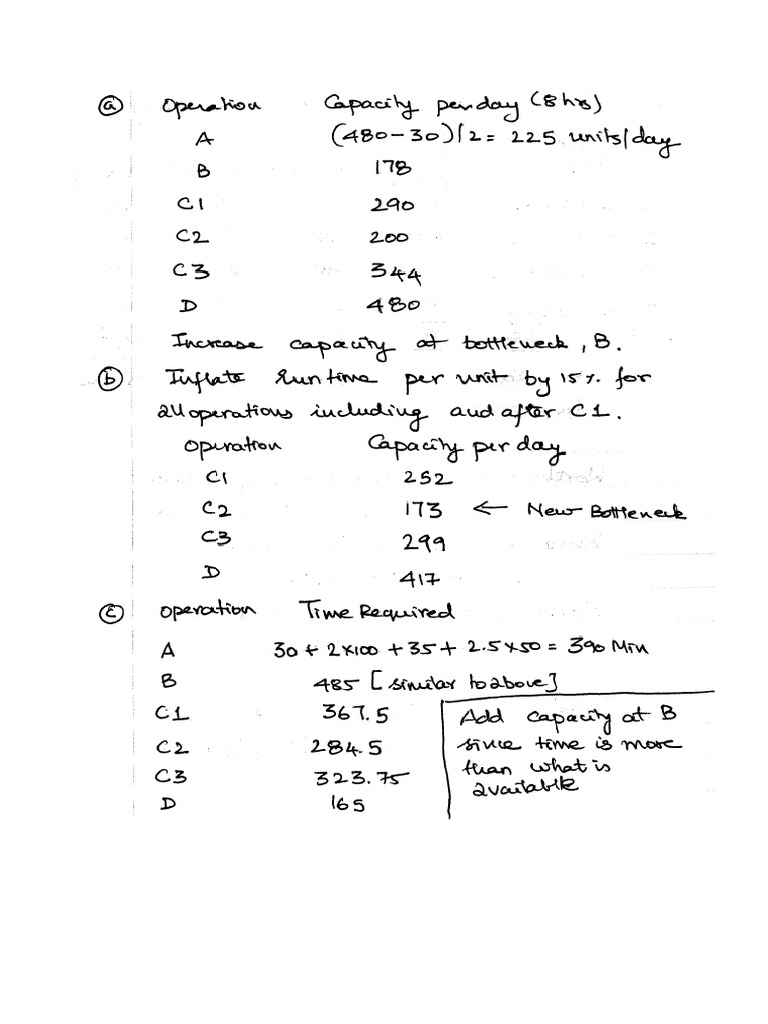 ⓐ Operation Capacity per day (8 hrs)
A (480-30)/2 = 225 units/day
B 178
C1 290
C2 200
C3 344
D 480
Increase capacity at bottleneck, B.
ⓑ Inflate Run time per unit by 15% for
all operations including and after C1.
Operation Capacity per day
C1 252
C2 173 ← New Bottleneck
C3 299
D 417
ⓒ Operation Time Required
A 30 + 2×100 + 35 + 2.5×50 = 390 Min
B 485 [similar to above]
C1 367.5
C2 284.5
C3 323.75
D 165
Add capacity at B
since time is more
than what is
available